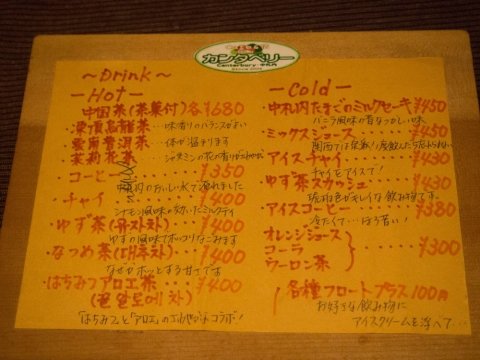 カンタベリー
Canterbury
~Drink~
-Hot-
中国茶(茶菓付)各¥680
・凍頂烏龍茶
味香りのバランスがよい
・雲南普洱茶
体が温まります
・茉莉花茶
ジャスミンの花の香り
コーヒー ¥350
札内のおいしい水で淹れました
・チャイ ¥400
シナモン風味が効いたミルクティ
・ゆず茶(유자차) ¥400
ゆずの風味でホッコリなごみます
・なつめ茶(대추차) ¥400
なぜかホッとする甘さです
・はちみつアロエ茶 ¥400
(꿀알로에차)
「はちみつ」と「アロエ」のコラボ!
-Cold-
・中札内たまごのミルクセーキ ¥450
バニラ風味の昔なつかしい味
ミックスジュース ¥450
アイスチャイ ¥430
チャイをアイスで!
ゆず茶スカッシュ ¥430
琥珀色がキレイな飲み物です。
・アイスコーヒー ¥380
冷たくて…ほろ苦い!
オレンジジュース
コーラ ¥300
ウーロン茶
・各種フロートプラス100円
お好きな飲み物に
アイスクリームを浮べて…